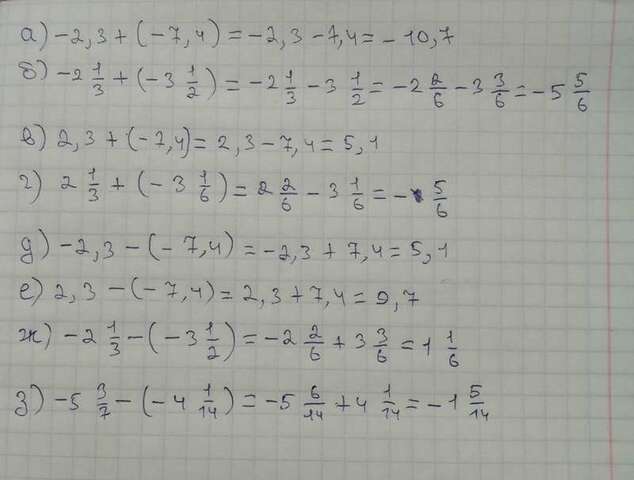 а) -2,3 + (-7,4) = -2,3 - 7,4 = - 10,7
б) -2 1/3 + (-3 1/2) = -2 1/3 - 3 1/2 = -2 2/6 - 3 3/6 = -5 5/6
в) 2,3 + (-7,4) = 2,3 - 7,4 = 5,1
г) 2 1/3 + (-3 1/6) = 2 2/6 - 3 1/6 = - 5/6
д) -2,3 - (-7,4) = -2,3 + 7,4 = 5,1
е) 2,3 - (-7,4) = 2,3 + 7,4 = 9,7
ж) -2 1/3 - (-3 1/2) = -2 2/6 + 3 3/6 = 1 1/6
з) -5 3/7 - (-4 1/14) = -5 6/14 + 4 1/14 = -1 5/14